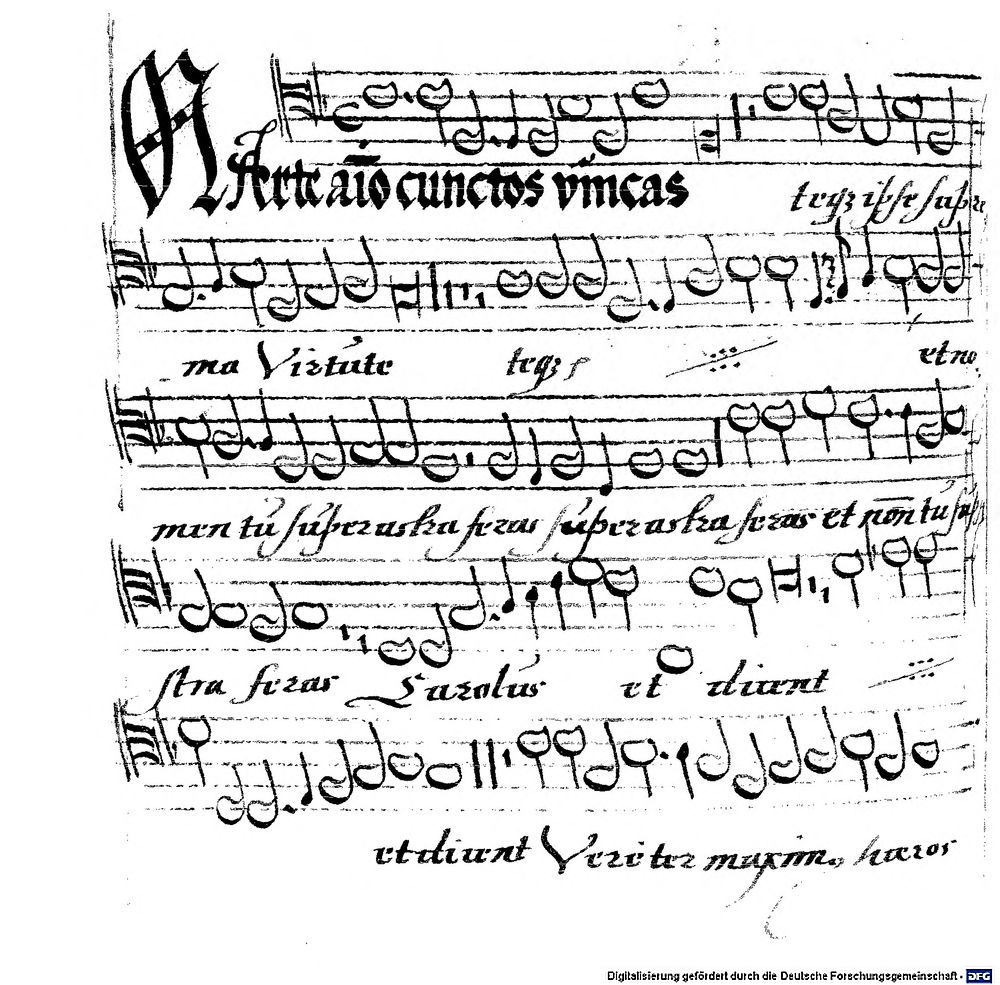 Afferte aīo cunctos vincas
teqȝ ipse supre
ma Virtute teqȝ et no
men tu super astra feras super astra feras et non tu sup
stra feras Carolus et dicent
et dicent Vere ter maxim9 hæros
Digitalisierung gefördert durch die Deutsche Forschungsgemeinschaft - DFG